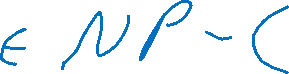 ∈ NP-C